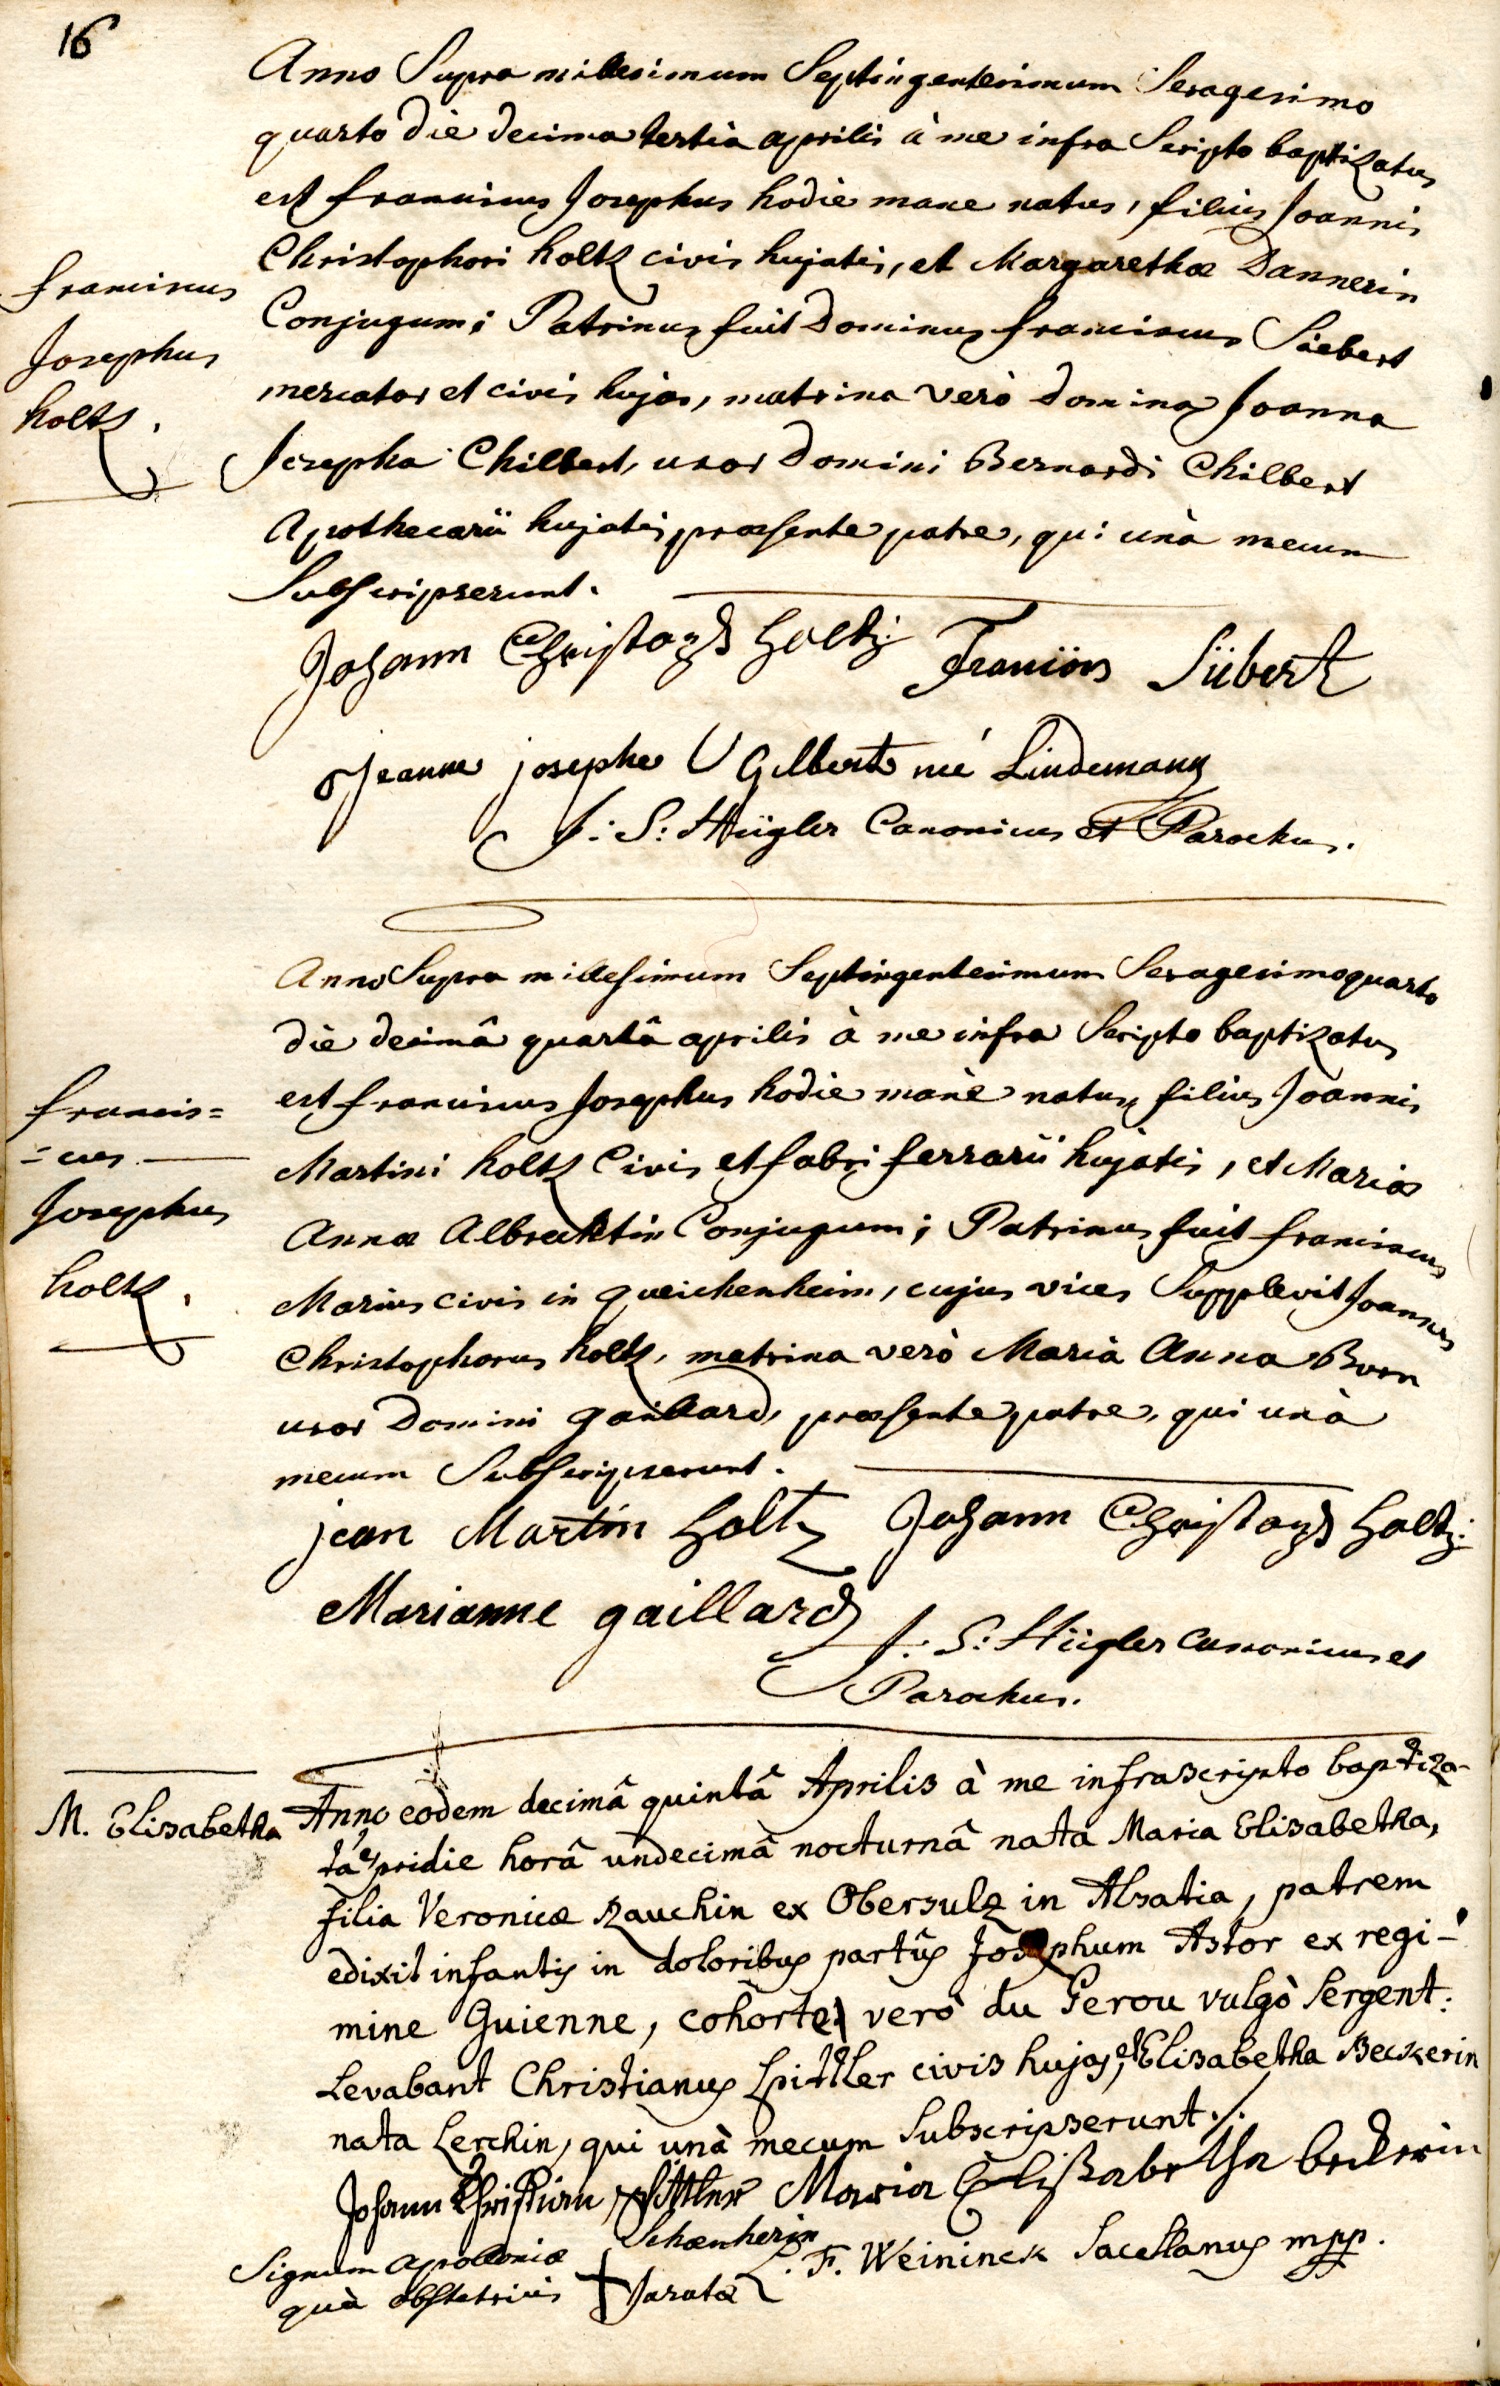 16
Anno Supra millesimum Septingentesimum Sexagesimo
quarto die decima tertia aprilis à me infra Scripto baptizatus
est franciscus Josephus hodie mane natus, filius Joannis
Christophori holtz civis hujatis, et Margarethæ Dannerin
Conjugum; Patrinus fuit Dominus franciscus Siebert
mercator et civis hujas, matrina verò domina Joanna
Josepha Chilbert, uxor Domini Bernardi Chilbert
Apothecarii hujatis, præsente patre, qui unà mecum
Subscripserunt.
franciscus
Josephus
holtz.
Johann Christoph Holtz Siibert
Jeanne josephe Gilbert né Lindemann
J: S: Hügler Canonicus et Parochus.
Anno Supra millesimum Septingentesimum Sexagesimo quarto
die decimâ quartâ aprilis à me infra Scripto baptizatus
est franciscus Josephus hodie manè natus filius Joannis
Martini holtz Civis et fabri ferrarii hujatis, et Mariæ
Annæ Albrecktin Conjugum; Patrinus fuit franciscus
Marius civis in queichenheim, cujus vices Supplevit Joannes
Christophorus holtz, matrina verò Maria Anna Born
uxor Domini gaillard, præsente patre, qui unà
mecum Subscripserunt.
francis=
=cus
Josephus
holtz.
jean Martin Holtz Johann Christoph Holtz
Marianne gaillard
J: S: Hügler Canonicus et
Parochus.
M. Elisabetha
Anno eodem decimâ quintâ Aprilis à me infrascripto baptiza-
ta e pridie horâ undecimâ nocturnâ nata Maria Elisabetha,
filia Veronicæ Rauchin ex Obersulz in Alsatia, patrem
edixit infantis in doloribus partûs Josephum Astor ex regi-
mine Guienne, cohorte verò du Perou vulgò Sergent:
Levabant Christianus Spittler civis hujas, et Elisabetha Beckerin
nata Lerchin, qui unà mecum Subscripserunt./.
Johann Christian Spittler Maria Elisabetha beckerin
Signum apolloniæ Schœnherin
quà obstetricis + Juratæ
L. F. Weininck Sacellanus mpp.